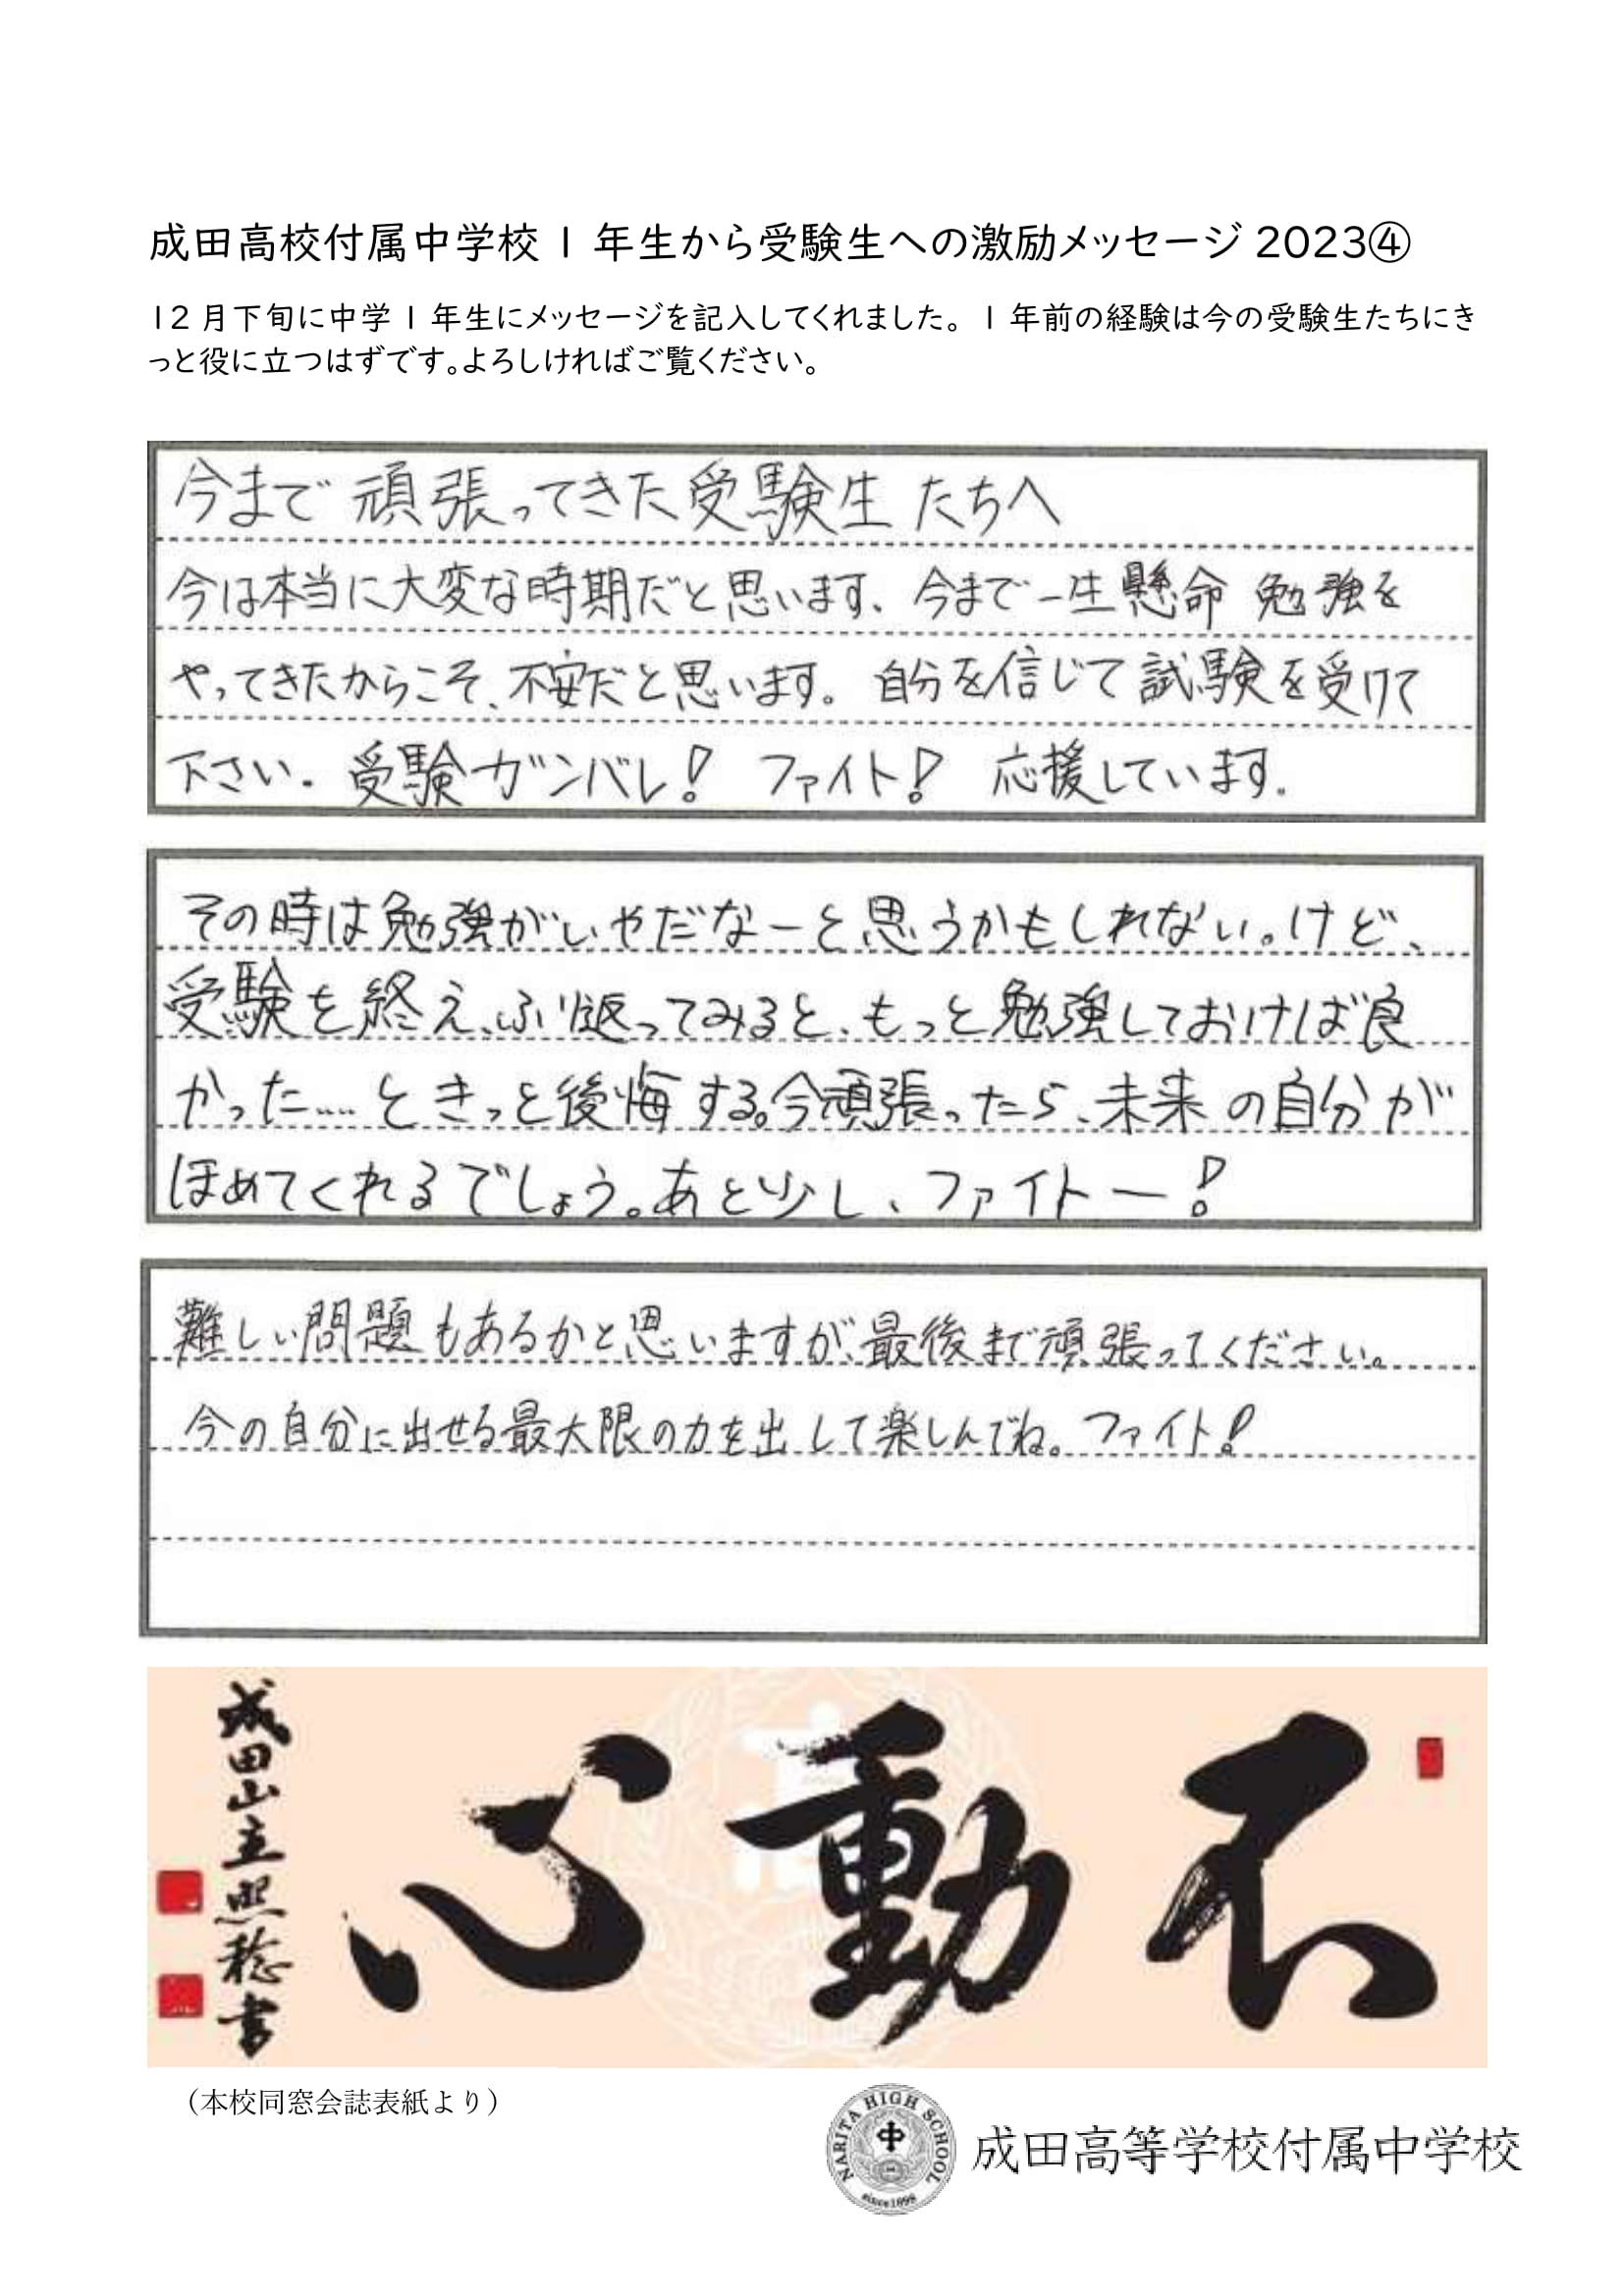 成田高校付属中学校1年生から受験生への激励メッセージ2023④
12月下旬に中学1年生にメッセージを記入してくれました。1年前の経験は今の受験生たちにき
っと役に立つはずです。よろしければご覧ください。
今まで頑張ってきた受験生たちへ
今は本当に大変な時期だと思います、今まで一生懸命勉強を
やってきたからこそ、不安だと思います。自分を信じて試験を受けて
下さい。受験ガンバレ!ファイト!応援しています。
その時は勉強がいやだなーと思うかもしれない。けど、
受験を終え、ふり返ってみると、もっと勉強しておけば良
かった……ときっと後悔する。今頑張ったら、未来の自分が
ほめてくれるでしょう。あと少し、ファイトー!
難しい問題もあるかと思いますが、最後まで頑張ってください。
今の自分に出せる最大限の力を出して楽しんでね。ファイト!
不動心
成田山主照稔書
(本校同窓会誌表紙より)
NARITA HIGH SCHOOL
中
since1898
成田高等学校付属中学校